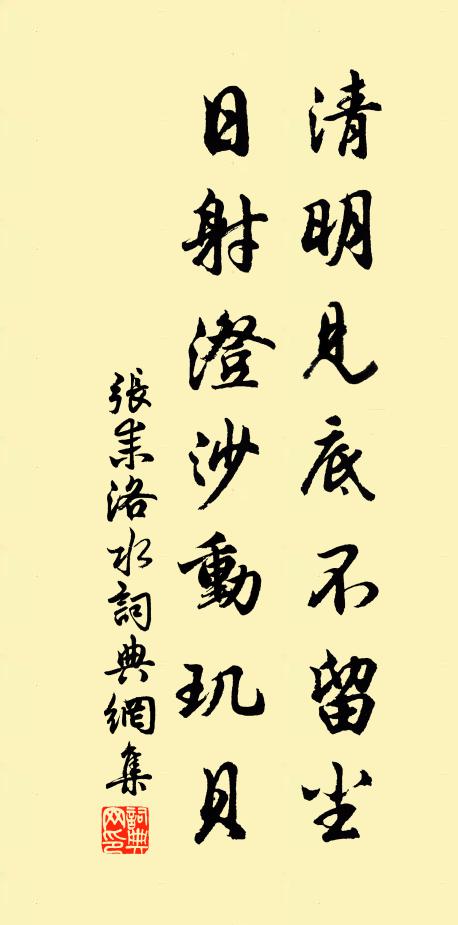 清明見底不留尘
日射澄沙動玑貝
張耒洛水詞典網集
詞典网印